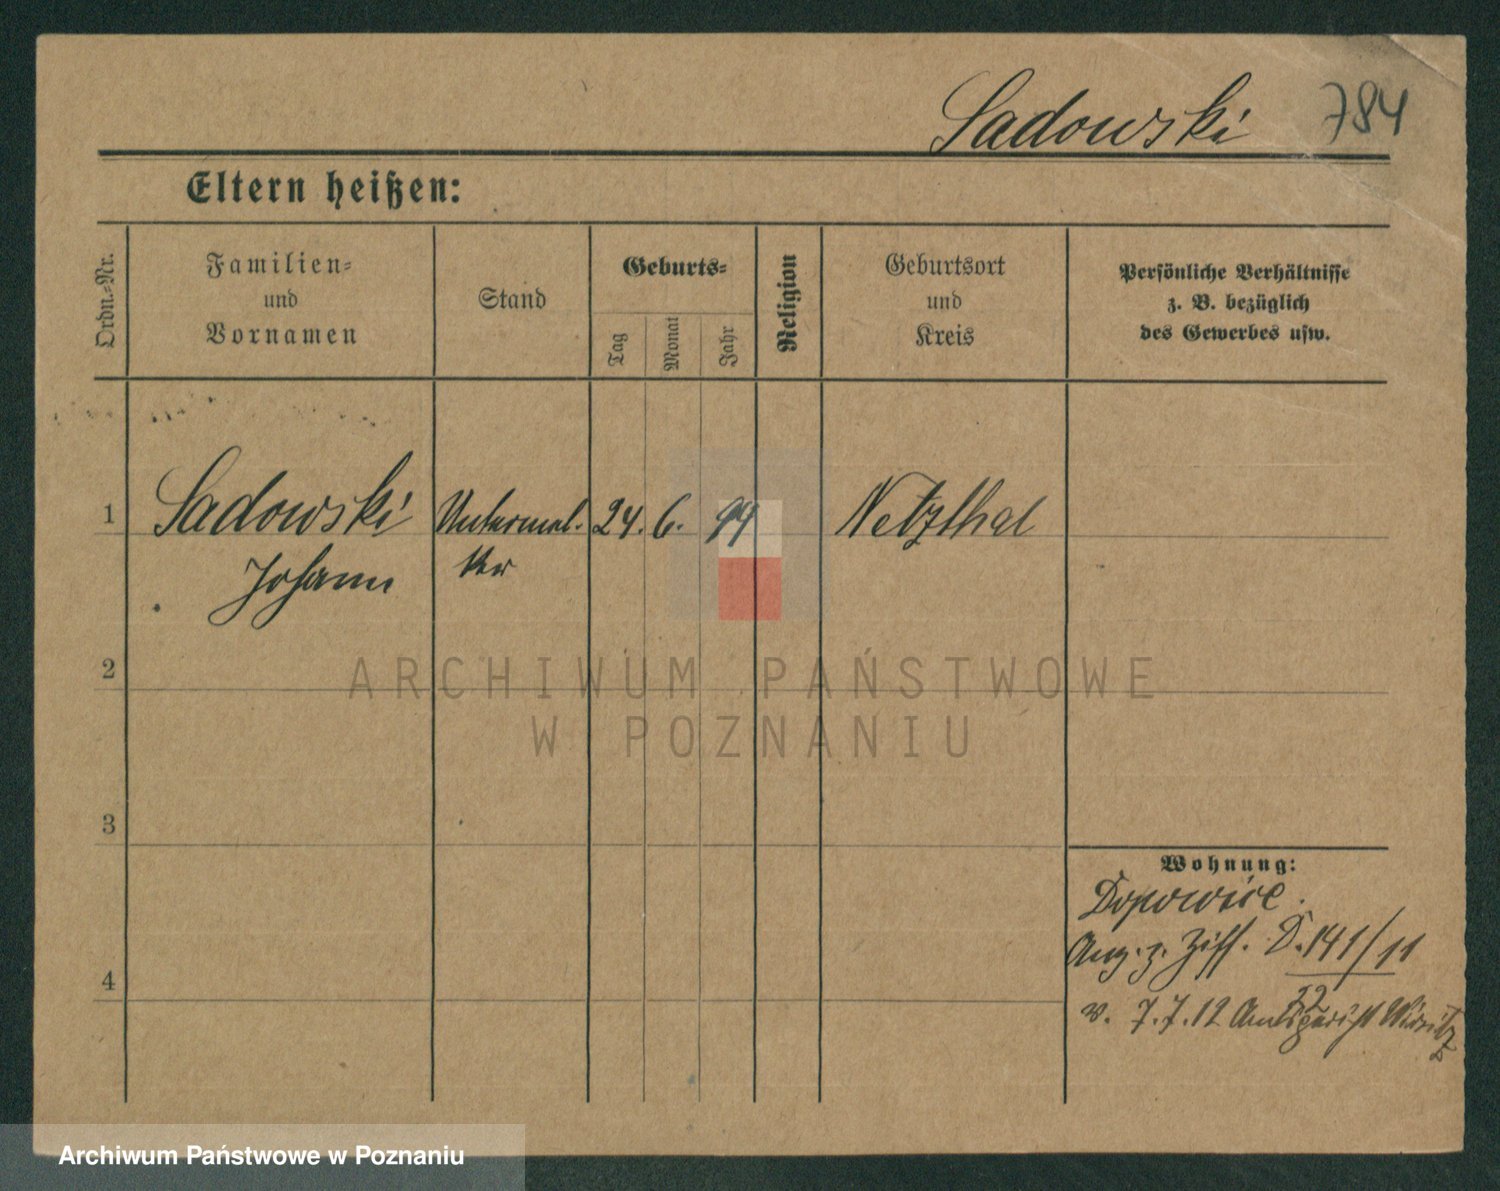 Sadowski 784
Eltern heißen:
Ordn.-Nr.
Familien-
und
Vornamen
Stand
Geburts-
Tag
Monat
Jahr
Religion
Geburtsort
und
Kreis
Persönliche Verhältnisse
z. B. bezüglich
des Gewerbes usw.
1
Sadowski
Johann
Untermel-
ker
24. 6. 94
Netzthal
2
3
4
Wohnung:
Anz. z. Ziff. D. 141/11
52
v. 7.7.12 Amtsgericht Wirsitz
ARCHIWUM PAŃSTWOWE
W POZNANIU
Archiwum Państwowe w Poznaniu